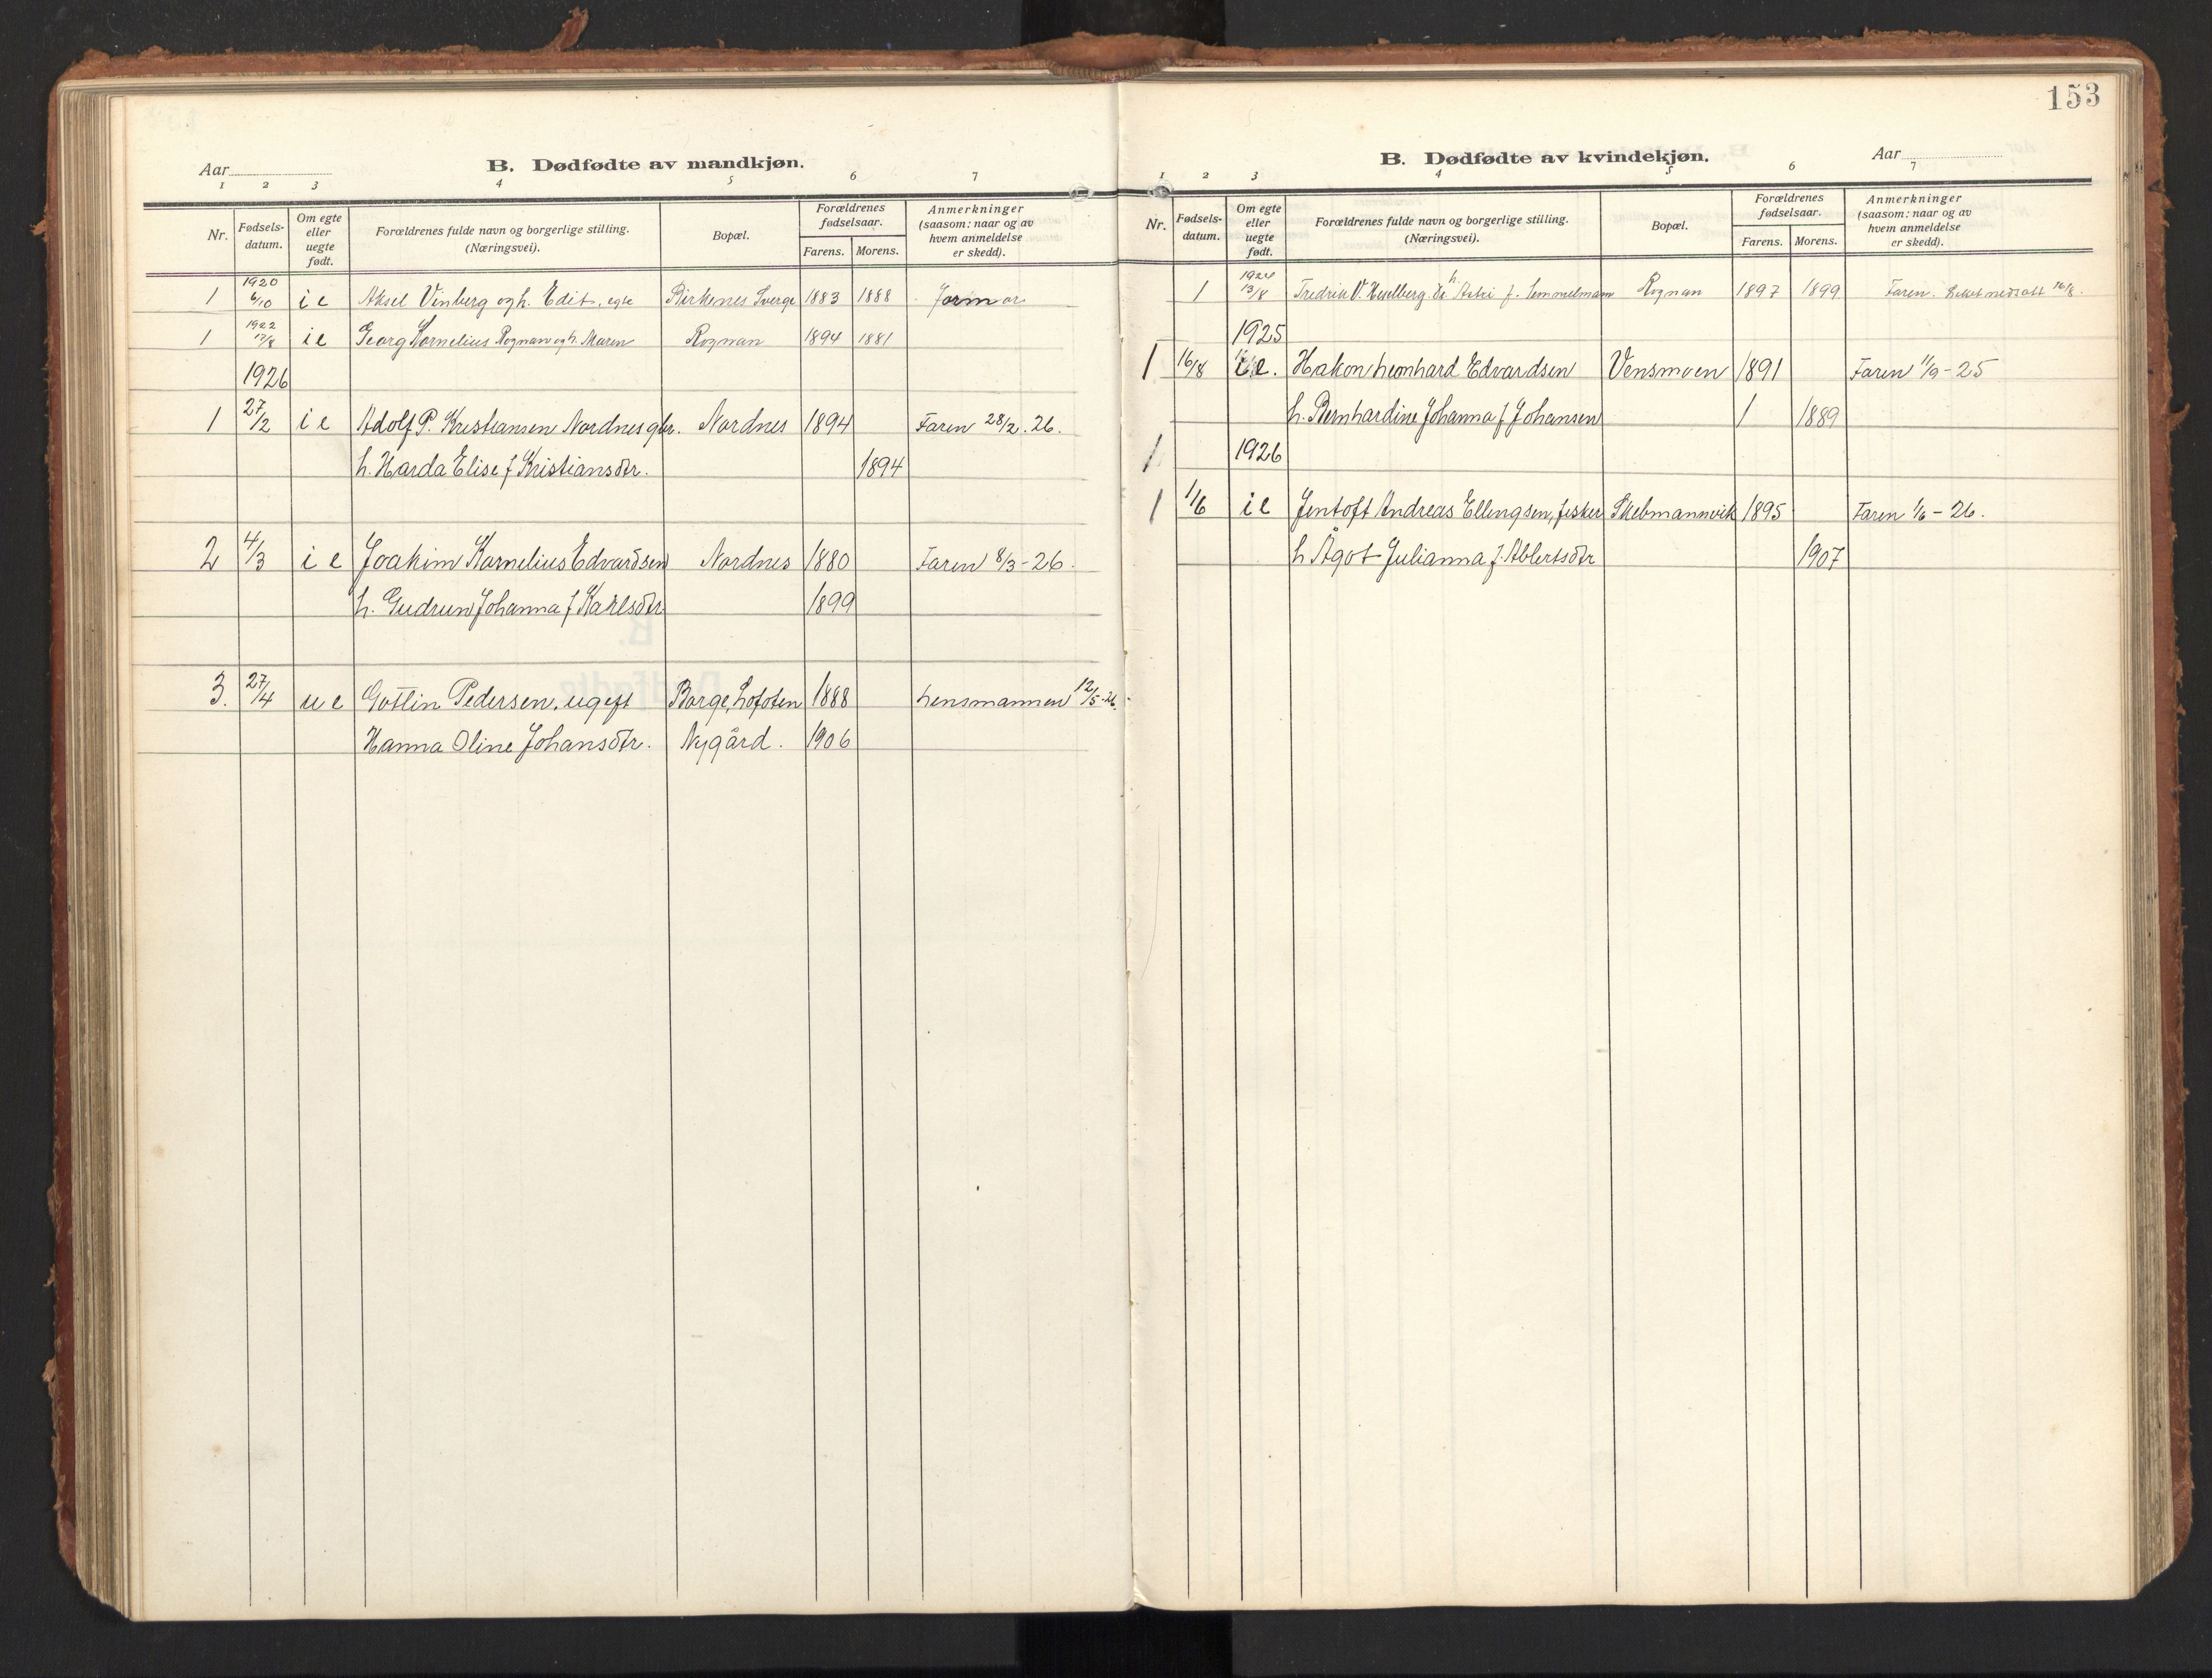 Aar
B. Dødfødte av mandkjøn.
1 2 3 4 5 6 7
Nr. Fødsels-datum. Om egte eller uegte født. Forældrenes fulde navn og borgerlige stilling. (Næringsvei). Bopæl. Forældrenes fødselsaar. Farens. Morens. Anmerkninger (saasom: naar og av hvem anmeldelse er skedd).
1920
1 6/10 i e Aksel Vinberg og h. Edit, egte Birkenes Sverge 1883 1888 Jormor
1922
1 17/8 i e Georg Kornelius Rognan og h. Maren Rognan 1894 1881
1926
1 27/2 i e Adolf P. Kristiansen Nordnes gbr. Nordnes 1894 Faren 28/2. 26.
h. Harda Elise f Kristiansdtr. 1894
2 4/3 i e Joakim Kornelius Edvardsen Nordnes 1880 Faren 8/3 - 26.
h. Gudrun Johanna f Karlsdtr 1899
3. 27/4 u e Gottlin Pedersen, ugift Borge, Lofoten 1888 Lensmannen 12/5-26.
Hanna Oline Johansdtr. Nygård. 1906
153
B. Dødfødte av kvindekjøn.
Aar
1 2 3 4 5 6 7
Nr. Fødsels-datum. Om egte eller uegte født. Forældrenes fulde navn og borgerlige stilling. (Næringsvei). Bopæl. Forældrenes fødselsaar. Farens. Morens. Anmerkninger (saasom: naar og av hvem anmeldelse er skedd).
1924
1 13/8 Fredrik V. h. f. Rognan 1897 1899 Faren. 16/8.
1925
1 16/8 i e. Hakon Leonhard Edvardsen Vensmoen 1891 Faren 11/9 - 25
h. Bernhardine Johanna f Johansen 1 1889
1. 1926
1 1/6 i e Jentoft Andreas Ellingsen, fisker Skebmannvik 1895 Faren 1/6 - 26.
h Ågot Julianna f. Ablertsdtr 1907